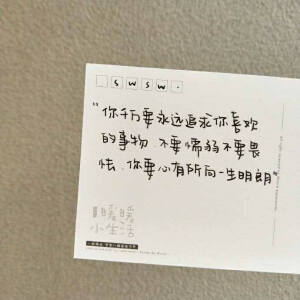 swsw.
“你千万要永远追求你喜欢
的事物、不要懦弱不要畏
怯、你要心有所向一生明朗”
暖暖
小生活